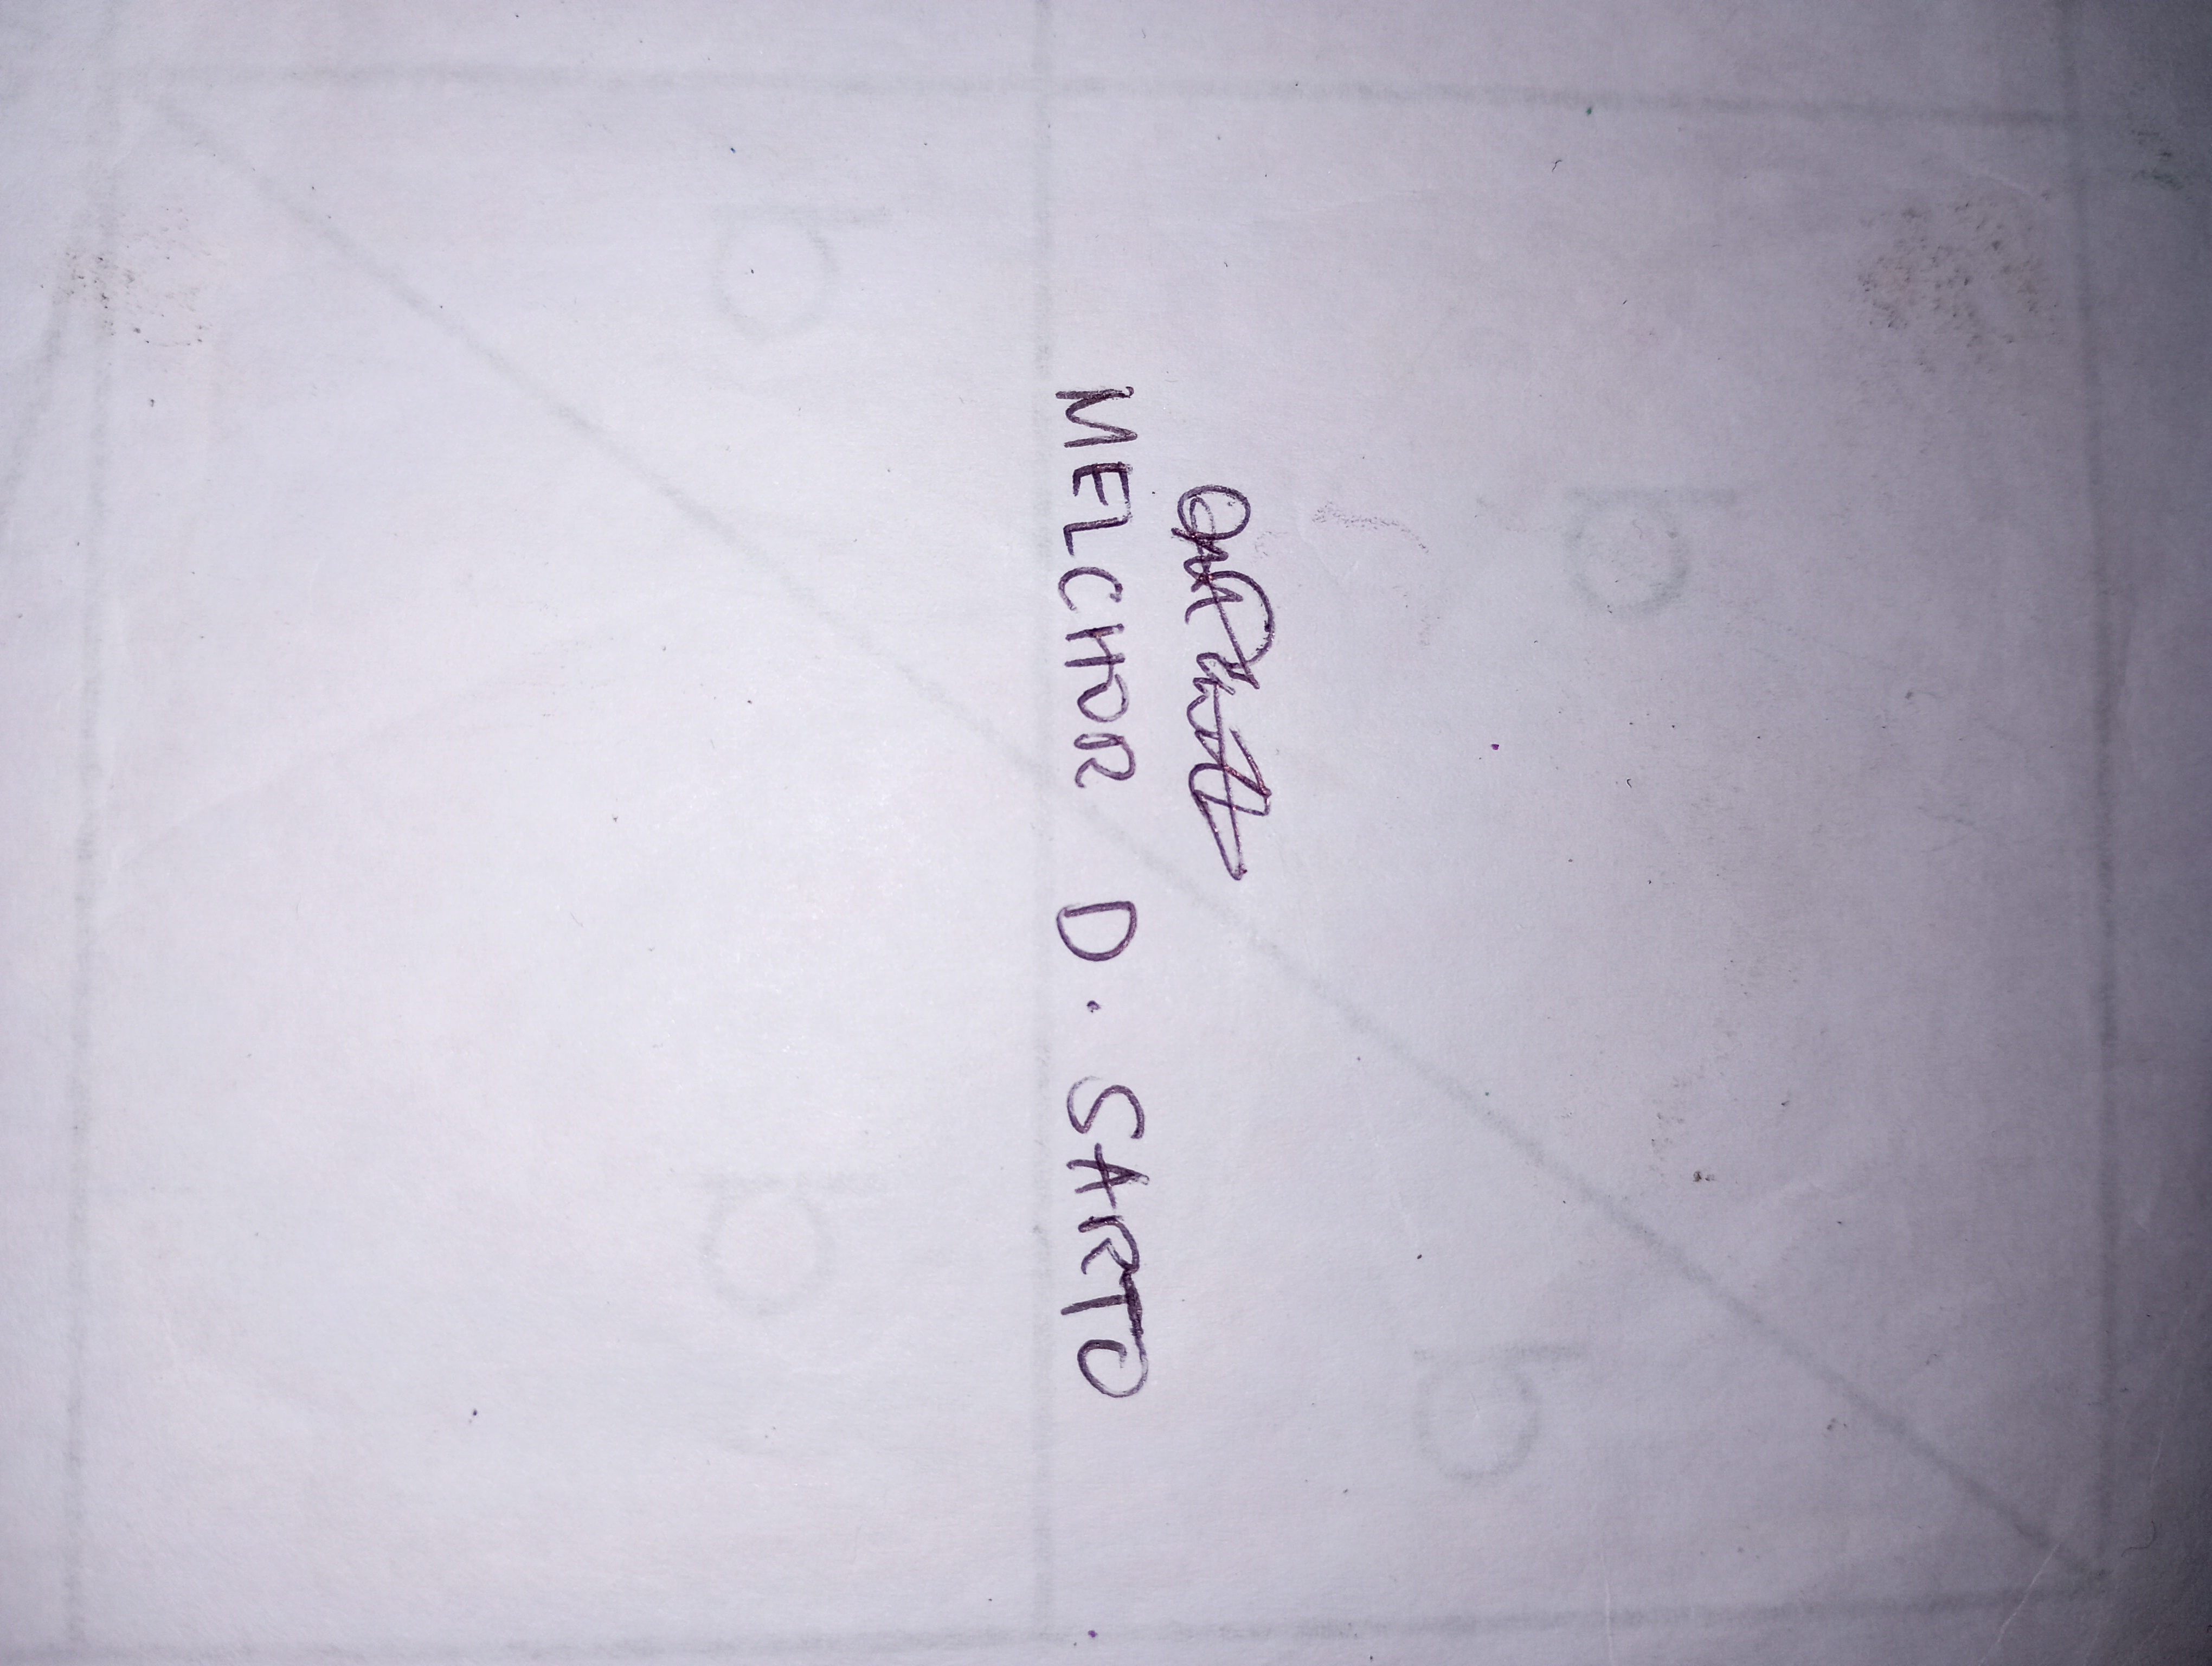 MELCHOR D. SARTO